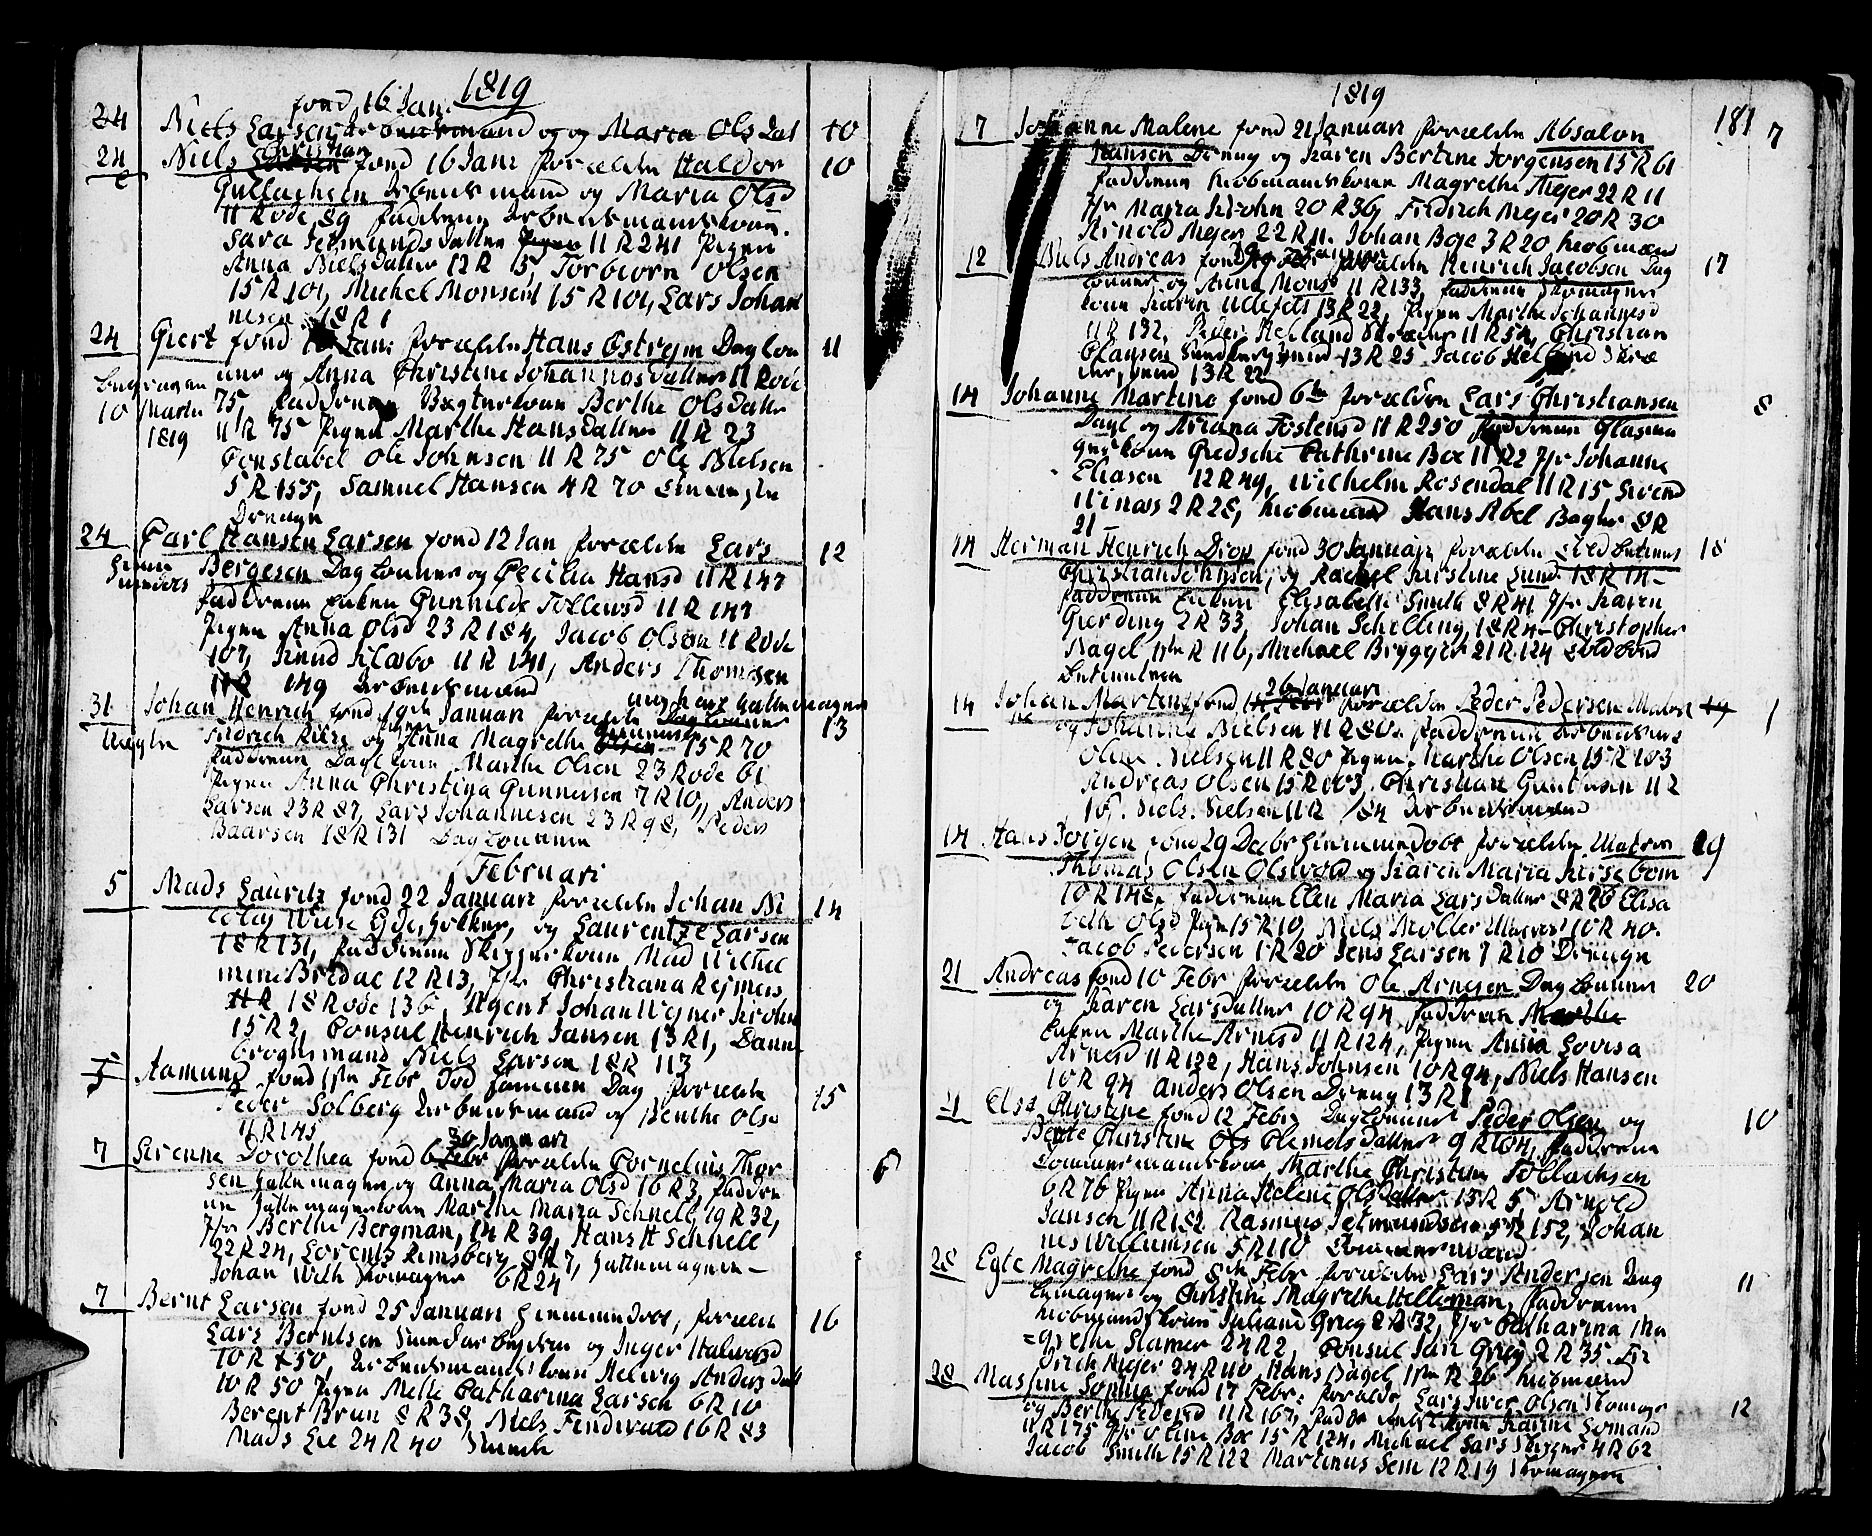 1819
24 Niels Larsen fond 16 Jan. Arbeidsmand og og Maria Olsdat 10
24 Niels Christian fond 16 Janr foreælde Haldor 10
Gullachsen Arbeidsmand og Maria Olsd
11 Rode 89 fadderne Arbeidsmandskone.
Sara Jetmundsdatter Pigen 11 R 241 Pigen
Anna Nielsdatter 12 R 15, Torbiørn Olsen
15 R 101, Michel Monsen 15 R 101, Lars Johan
nesen 18 R 1
24 Giert fond Jan: forælde Hans Østrejm Daglon 11
ner og Anna Christine Johannesdatter 11 Rode
begraven
10 Martii 75, fadderne Bagterkone Berthe Olsdatter
1819 11 R 75 Pigen Marthe Hansdatter 11 R 23
Constabel Ole Johnsen 11 R 75 Ole Nielsen
5 R 155, Samuel Hansen 4 R 70
Drenge
24 Carl Hansen Larsen fond 12 Jan forælde Lars 12
Bergesen Daglonner og Cecilia Hansd 11 R 147
fadderne Enken Gunnilde Tollewsd 11 R 147
Pigen Anna Olsd 23 R 184, Jacob Olsen 11 Rode
107, Knud Klasbo 11 R 141, Anders Thomsen
11 R 149 Arbeidsmænd
31 Johan Henrich fond 19de Januar forælde Daglonner 13
Uægte Fredrich og Pigen Anna Magrethe Gunnersen 15 R 70
fadderne Dagl kone Marthe Olsen 23 Rode 61
Pigen Anna Christina Gunnersen 7 R 10, Anders
Larsen 23 R 87, Lars Johannesen 23 R 98, Peder
Baarsen 18 R 131 Daglonnere
Februari
5 Mads Lauritz fond 22 Januari forælde Johan Ni 14
colay Wiese og Laurentze Larsen
18 R 131, fadderne Skipperkone Mad Wilhel
mine Bredal 12 R 13, Jfr Christiana Rejmers
11 R 18 Rode 136, Agent Johan Wejner Krohn
15 R 2, Consul Henrich Jansen 13 R 1, Danne
broghsmand Niels Larsen 18 R 113
5 Aamund fond 1ste Febr Død samme Dag forælde 15
Peder Solberg Arbeidsmand og Benthe Olsd
11 R 145
7 Serenne Dorothea fond 6 Febr 30 Januari forælde Cornelius Thor 6
sen hattemager og Anna Maria Olsd 16 R 3, faddre
ne hattemagerkone Marthe Maria Schnell 19 R 32,
Jfr Berthe Bergman, 14 R 39, Hans H Schnell
22 R 24, Lorentz Remsberg 8 R 7, hattemagere
Johan With Skomager 6 R 24
7 Bernt Larsen fond 25 Januari hiemmedøbt, forælde 16
Lars Berntsen og Inger Halword
10 R 50, Arbeidsmandskone Helwig Andersdatt
10 R 50 Pigen Mette Catharina Larsen 6 R 10
Berent Brun 8 R 38, Niels Findwed 16 R 83
Mads Eie 24 R 40
1819
181
7 Johanne Malene fond 21 Januari forælde Absalon 7
Hansen Dreng og Karen Bertine Jorgensen 15 R 61
fadderne kiobmandskone Magrethe Mejer 22 R 11
Jfr Maria Krohn 20 R 36, Fridrich Mejer 20 R 30
Arnold Mejer 22 R 11. Johan Boje 3 R 20 kiobmænd
12 Niels Andreas fond Januari forælde Henrich Jacobsen Dag 17
lonner og Anna Monsd 11 R 133 fadderne Skomager
kone Karen Ullefors 13 R 22, Pigen Marthe Johannesd
11 R 132, Peder Helland Skræder 11 R 54, Christian
Clausen 13 R 25 Jacob Helland Skræ
der 13 R 22
14 Johanne Martine fond 6te forælde Lars Christiansen 8
Dagl og Ariana Tostensd 11 R 250 fadderne Glasma
gerkone Giedsche Cathrine Bøe 11 R 2 Jfr Johanne
Eliasen 12 R 49, Wilhelm Rosendal 11 R 15 Svend
Winass 2 R 28, kiobmænd Hans Abel Bager 8 R
21
14 Herman Henrich Drop fond 30 Januari forælde 18
Christian Johnsen, og Rachel Kirstine Lund 18 R 14
fadderne Enken Elisabeth Smith 8 R 41 Jfr Karen
Gierding 2 R 33, Johan Schilling 18 R 4 Christopher
Nagel 11te R 116, Michael Brygger 21 R 124
14 Johan Martin fond 11 Febr 26 Januari forælde Peder Pedersen Matros 1
og Johanne Nielsen 11 R 80. fadderne Arbeidsms
Oline Nielsen 11 R 80 Pigen Marthe Olsen 15 R 103
Andreas Olsen 15 R 103, Christian Guntersen 11 R
Niels Nielsen 11 R 184 Arbeidsmænd
14 Hans Jorgen fond 29 Decbr hiemmedøbt forælde Matros 19
Thomas Olsen Olswold og Karen Maria Kirsebom
10 R 148, fadderne Elen Maria Larsdatter 8 R 26 Elisa
beth Olsd Pigen 15 R 10, Niels Moller Matros 10 R 40.
Jacob Pedersen 1 R 20 Jens Larsen 7 R 10 Drenge
21 Andreas fond 10 Febr forælde Ole Arnesen Daglonner 20
og Karen Larsdatter 10 R 94 fadderne Marthe
Enken Marthe Arnesd 11 R 124, Pigen Anna Lovisa
Arnesd 11 R 122, Hans Johnsen 10 R 94, Niels Hansen
10 R 94 Anders Olsen Dreng 13 R 1
21 Elsa Christine fond 12 Febr Daglonner Peder Olsen og 10
Bente Christine Ols Clemetsdatter 9 R 104, fadderne
Tommermandskone Marthe Christine Tollachsen
6 R 76 Pigen Anna Helene Olsdatter 13 R 5 Arnold
Jansen 11 R 182 Rasmus Jetmundsen 5 R 152, Johan
nes Willumsen 5 R 110 Tommermænd
28 Egte Magrethe fond 8de Febr forælde Lars Andersen Bag 11
og Christine Magrethe Welleman, fadderne
kiobmandskone Juliane Grieg 2 R 32, Jfr Catharina Ma
=grethe Stamer 24 R 2, Consul Jan Grieg 2 R 35 Fri
drich Mejer 24 R 110 Hans Bagel 11te R 26 kiobmænd
28 Massine Sophia fond 17 Febr: forælde Lars Iwer Olsen Skomager 12
og Berthe Pedersd 11 R 167, Karine Lomand
11 R 175 Jfr Oline Bøe 15 R 124, Michael Sars Skipper 4 R 62
Jacob Smith 15 R 122 Martinus Sem 12 R 19 Skomagere